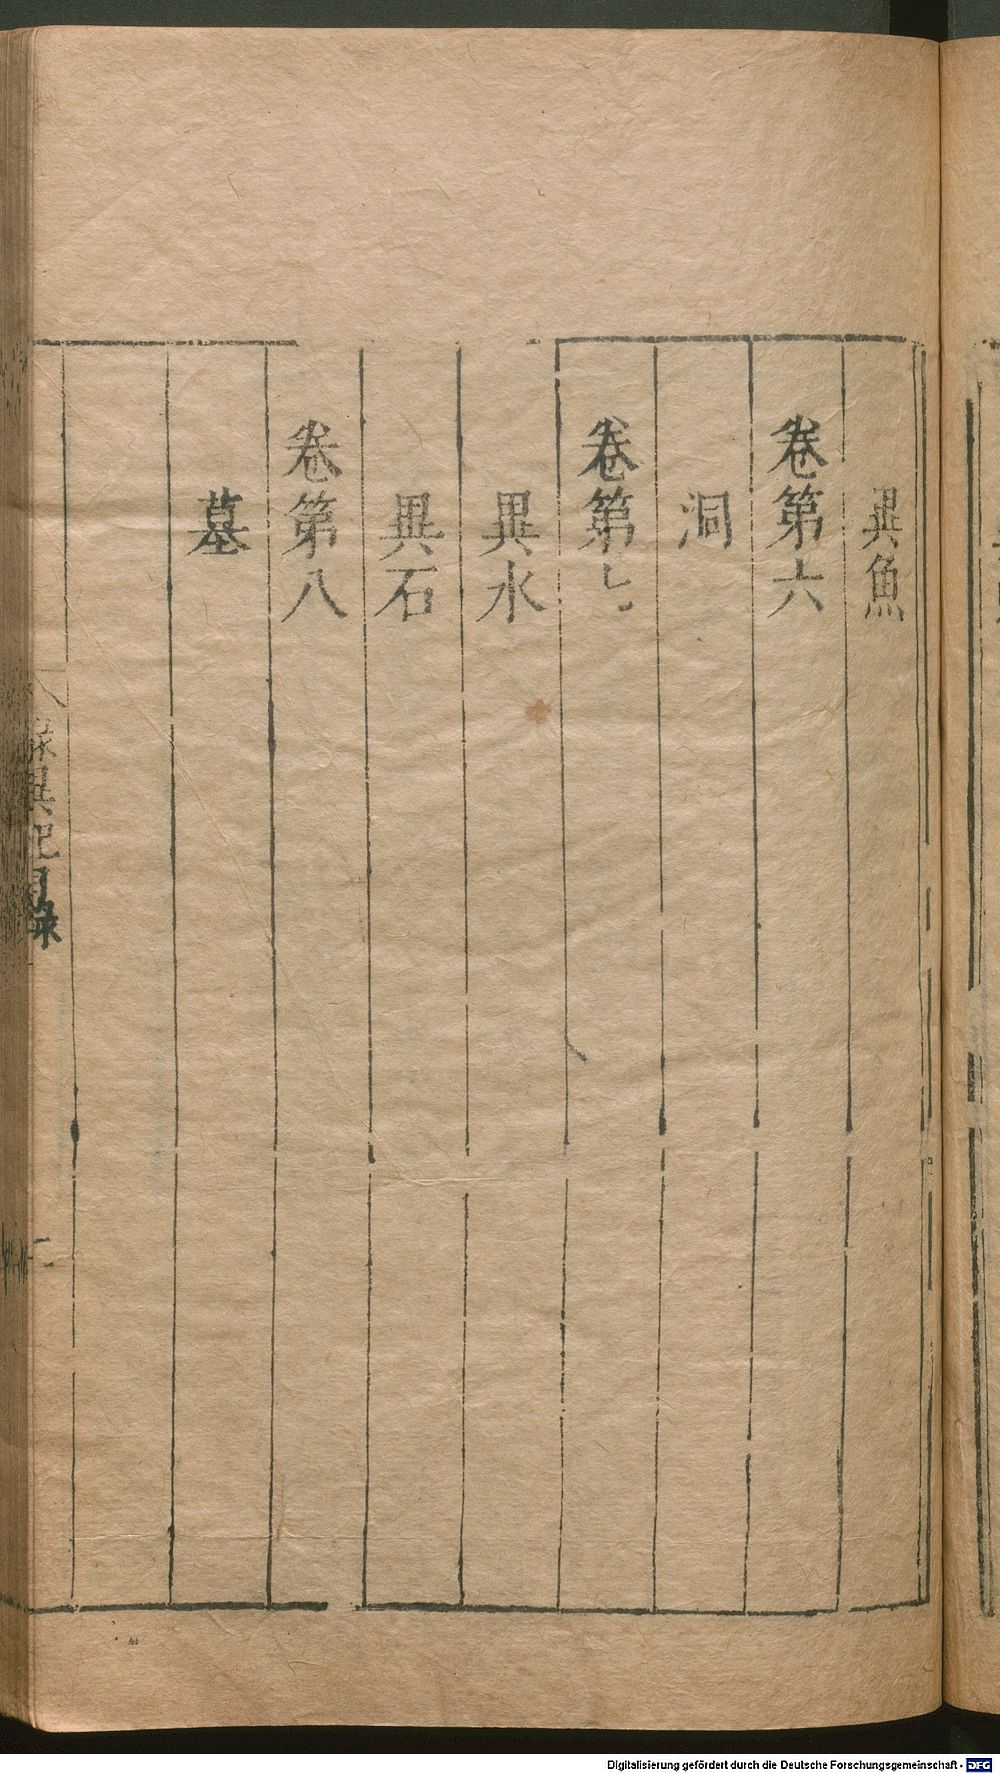 異魚
卷第六
洞
卷第七
異水
異石
卷第八
墓
錄異記目錄
二
Digitalisierung gefördert durch die Deutsche Forschungsgemeinschaft - DFG